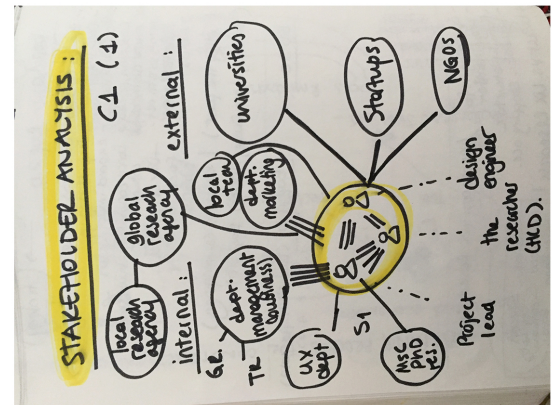 STAKEHOLDER ANALYSIS:
C1 (1)
local
research
agency
global
research
agency
internal:
external:
G.R.
TR
dept.
management
(business)
local
team
dept.
marketing
universities
UX
dept
S1
MSc
PhD
res.
Startups
NGOs
Project
lead
the
researcher
(HCD).
design
engineer